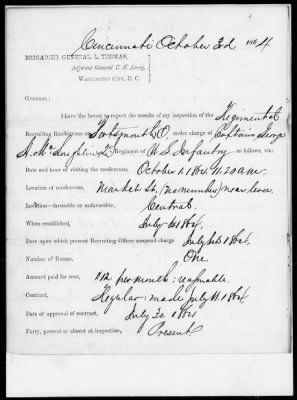 Cincinnati October 3d 1864
BRIGADIER GENERAL L. THOMAS,
Adjutant General U. S. Army,
WASHINGTON CITY, D. C.
GENERAL:
I have the honor to report the results of my inspection of the Regimental
Recruiting Rendezvous at Portsmouth, O. under charge of Captain George
H. McLoughlin 2d Regiment of U S Infantry as follows, viz:
Date and hour of visiting the rendezvous. October 1, 1864. 11.20 a.m.
Location of rendezvous, Market St. (no number) near
Location—favorable or unfavorable, Central.
When established, July 1864.
Date upon which present Recruiting Officer assumed charge July 1864.
Number of Rooms, One
Amount paid for rent, $12 per month: reasonable.
Contract, Regular: made July 11. 1864
Date of approval of contract, July 20. 1864
Party, present or absent at inspection, Present